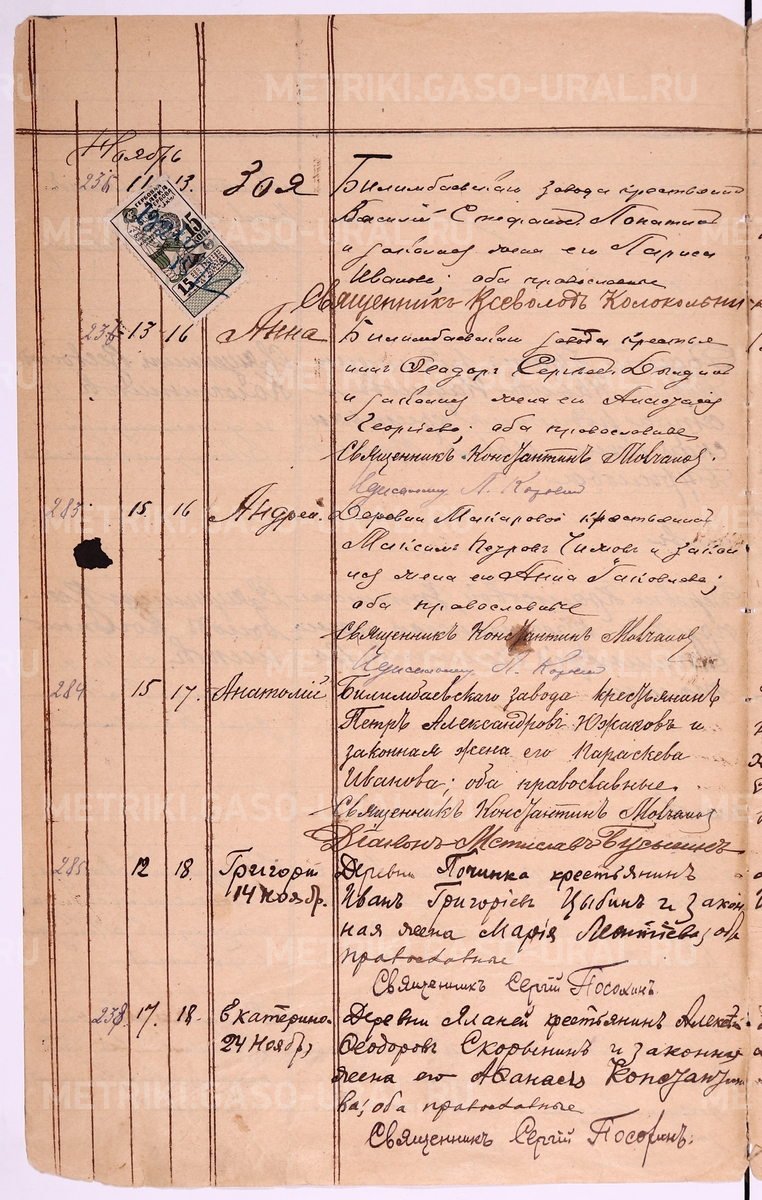 METRIKI.GASO-URAL.RU
Ноябрь
236 11 13. Зоя Билимбаевскаго завода крестьянинъ
Василій Стефановъ
и законная жена его Лариса
Иванова; оба православные
Священникъ Всеволодъ Колокольни
15
13 16 Анна Билимбаевскаго завода крестья
нинъ Ѳеодоръ Сергѣевъ
и законная жена его Анастасія
Георгіева; оба православные
Священникъ Константинъ Мовчановъ.
283 15 16 Андрей. Деревни Макаровой крестьянинъ
Максимъ Петровъ и закон
ная жена его Анна Яковлева;
оба православные
Священникъ Константинъ Мовчановъ
284 15 17. Анатолій Билимбаевскаго завода крестьянинъ
Петръ Александровъ Южаковъ и
законная жена его Параскева
Иванова; оба православные.
Священникъ Константинъ Мовчановъ
Діаконъ Мстиславъ
285 12 18. Григорій Деревни Починка крестьянинъ
14 Ноябр. Иванъ Григоріевъ Цыбинъ и закон
ная жена Марія Леонтіева; оба
православные
Священникъ Сергій Посохинъ.
238 17. 18. Екатерина Деревни Яланей крестьянинъ Алексѣй
24 Ноябр. Ѳеодоровъ Скорынинъ и законная
жена его Аѳанасія Константино
ва; оба православные
Священникъ Сергій Посохинъ.